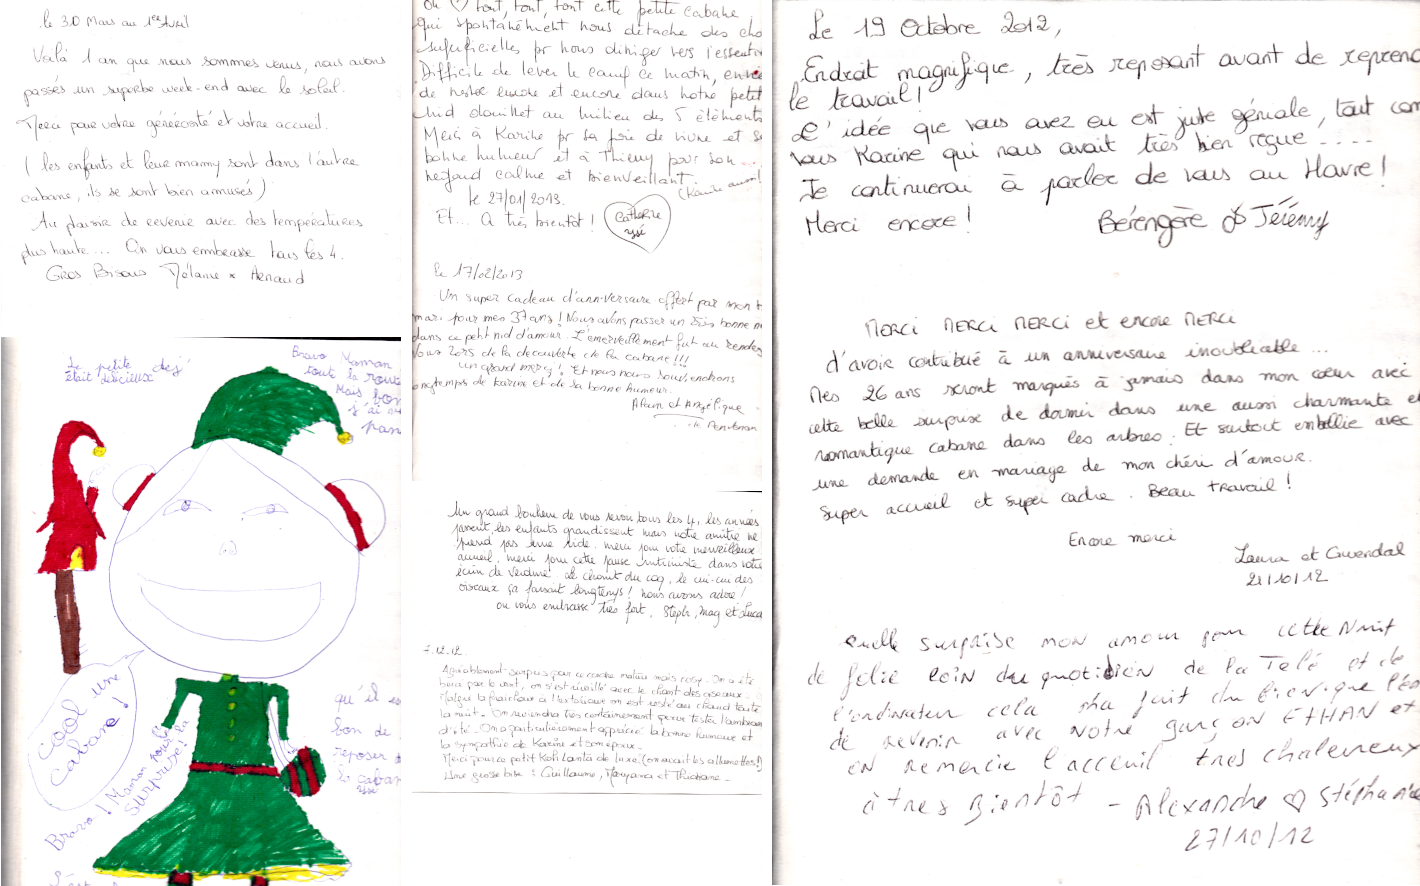 le 30 Mars au 1er Avril
Voilà 1 an que nous sommes venus, nous avons
passés un superbe week-end avec le soleil.
Merci pour votre générosité et votre accueil.
( les enfants et leur mamy sont dans l'autre
cabane, ils se sont bien amusés )
Au plaisir de revenir avec des températures
plus haute ... On vous embrasse tous les 4.
Gros Bisous Mélanie x Arnaud
Le petite dej
était délicieux
Bravo Maman
tout la rout
Mais bon
j'ai
pan
cool une
cabane !
Bravo ! Maman pour la
surprise !
qu'il es
bon de
reposer
la caban
yssé
Oh ♡ tout, tout, tout cette petite cabane
qui spontanément nous détache des cho
superficielles pr nous diriger vers l'essentie
Difficile de lever le camp ce matin, envie
de rester encore et encore dans notre petit
nid douillet au milieu des 5 éléments
Merci à Karine pr sa joie de vivre et s
bonne humeur et à Thierry pour son ...
regard calme et bienveillant.
(Karine aussi!)
le 27/01/2013.
Et... A très bientôt !
Catherine
yssé
le 17/02/2013
Un super cadeau d'anniversaire offert par mon
mari pour mes 37 ans ! Nous avons passer un très bonne
dans ce petit nid d'amour. L'émerveillement fut au rendez
Vous lors de la découverte de la cabane !!!
un grand merci ! Et nous nous souviendrons
longtemps de Karine et de sa bonne humeur.
Alain et Angélique
Un grand bonheur de vous revoir tous les 4, les années
passent, les enfants grandissent mais notre amitié ne
prend pas une ride. merci pour votre merveilleux
accueil, merci pour cette pause intimiste dans votre
écrin de verdure. Le chant du coq, le cui-cui des
oiseaux ça faisait longtemps ! nous avons adoré !
on vous embrasse très fort. Steph, Mag et Luca
7.12.12.
Agréablement surpris pour ce cache nature mais cosy. On a été
bercé par le vent, on s'est réveillé avec le chant des oiseaux.
Malgré la fraîcheur à l'extérieur on est resté au chaud toute
la nuit. On reviendra très certainement pour tester l'ambiance
d'été. On a particulièrement apprécié la bonne humeur et
la sympathie de Karine et son époux.
Merci pour ce petit Koh Lanta de luxe (on avait les allumettes !)
Une grosse bise : Guillaume, et
Le 19 Octobre 2012,
Endroit magnifique, très reposant avant de reprend
le travail !
L'idée que vous avez eu est juste géniale, tout com
vous Karine qui nous avait très bien reçue ....
Je continuerai à parler de vous au Havre !
Merci encore !
Bérengère & Jérémy
Merci Merci Merci et encore Merci
d'avoir contribué à un anniversaire inoubliable ...
Mes 26 ans seront marqués à jamais dans mon cœur avec
cette belle surprise de dormir dans une aussi charmante et
romantique cabane dans les arbres. Et surtout embellie avec
une demande en mariage de mon chéri d'amour.
Super accueil et super cadre. Beau travail !
Encore merci
Laura et Gwendal
21/10/12
quelle surprise mon amour pour cette Nuit
de folie loin du quotidien de la Télé et de
l'ordinateur cela m'a fait du bien que l'on
de revenir avec notre garçon ETHAN et
on remercie l'acceuil tres chaleureux
à tres Bientôt - Alexandre ♡ Stéphanie
27/10/12